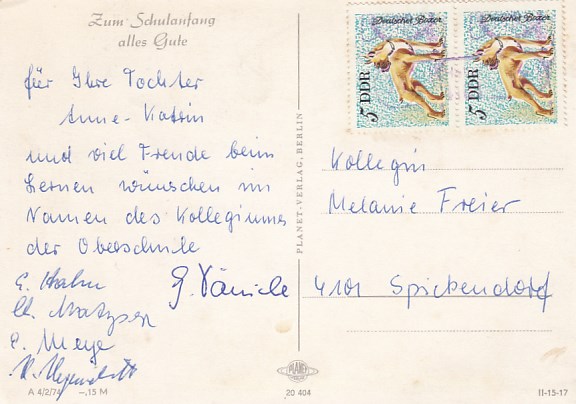 Zum Schulanfang
alles Gute
für Ihre Tochter
Anne-Katrin
und viel Freude beim
Lernen wünschen im
Namen des Kollegiums
der Oberschule
E. Hahn
G. Dänicke
E. Meye
A 4/2/74 –,15 M
PLANET-VERLAG, BERLIN
PLANET
20 404
Deutscher Boxer
DDR
5
Deutscher Boxer
DDR
5
Kollegin
Melanie Freier
4101 Spickendorf
II-15-17